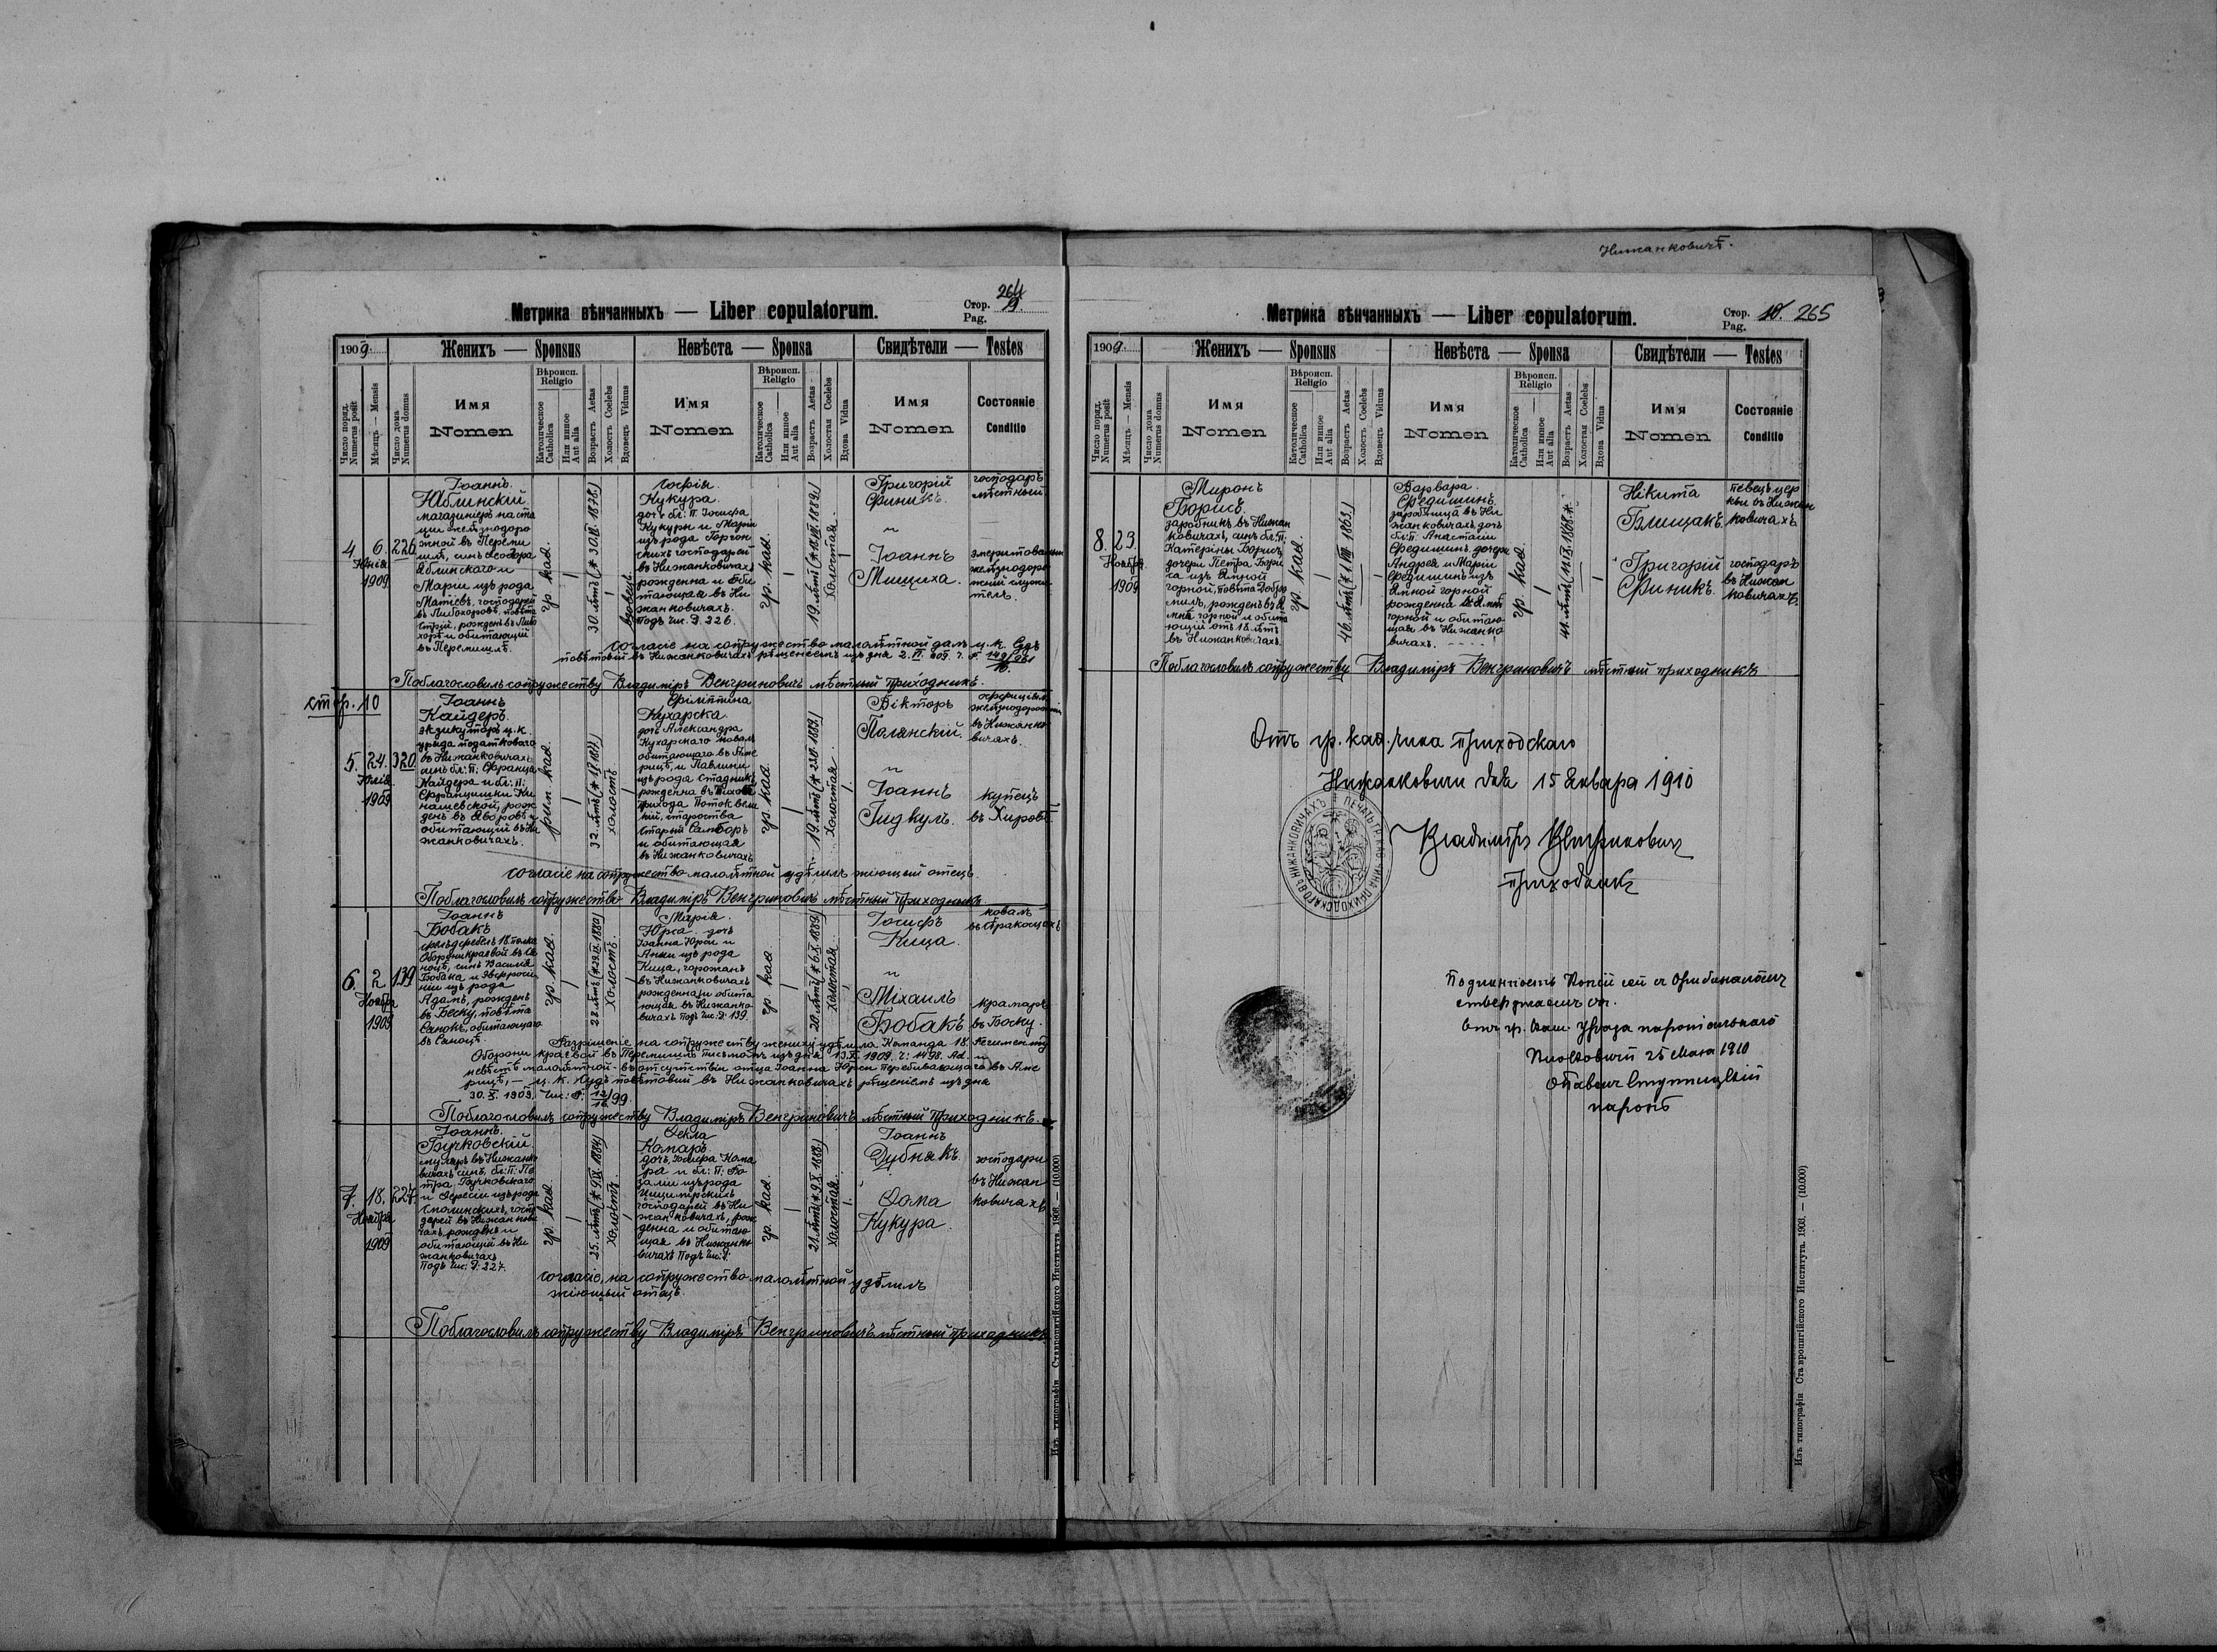 Нижанковичѣ.
Метрика вѣнчанныхъ — Liber copulatorum.
Стор. Pag. 9. 264
1909.
Женихъ — Sponsus
Невѣста — Sponsa
Свидѣтели — Testes
Число поряд. Numerus posit
Мѣсяцъ — Mensis
Число дома Numerus domus
Имя Nomen
Вѣроисп. Religio
Католическое Catholica
Или иное Aut alia
Возрастъ Aetas
Холостъ Coelebs
Вдовецъ Viduus
Имя Nomen
Вѣроисп. Religio
Католическое Catholica
Или иное Aut alia
Возрастъ Aetas
Холостая Coelebs
Вдова Vidua
Имя Nomen
Состояніе Conditio
4. 6. Юнія 1909 226
Іоаннъ.
Яблинскій
магазинеръ на ста
ціи желѣзнодоро
жной въ Переми
шлѣ, синъ Ѳеодора
Яблинского и
Маріи изъ рода
Матіевъ, господарей
въ Либохоровѣ, повѣта
Стрій, рожденъ въ Либо
хорѣ и обитающій
въ Перемишлѣ.
гр. каѳ.
30. лѣтъ (* 30. 1878.)
вдовецъ
Софія.
Кукура
дочь бл: п. Іосифа
Кукуры и Маріи
изъ рода Горгон
скихъ господарей
въ Нижанковичахъ
рожденна и оби
тающая въ Ни
жанковичахъ.
подъ Чис. Д. 226.
гр. каѳ.
19. лѣтъ
холостая
Григорій
Финикъ.
господаръ
мѣстный
Іоаннъ
Мициха.
емеритованый
желѣзнодоро
жній служи
тель.
Согласіе на сопружество малолѣтной далъ ц. к. Судъ
повѣтовый въ Нижанковичахъ рѣшеніемъ изъ дня 2. VI. 909.
Поблагословилъ сопружеству Владиміръ Венгриновичъ мѣстный приходникъ.
стор. 10
5. 24. Юлія 1909 320
Іоаннъ
Кайдеръ.
екзикуторъ ц. к.
уряда податкового
въ Нижанковичахъ
синъ бл: п: Франца
Кайдера и бл: п:
Францишки Ки
нашевской, рож
денъ въ Яворовѣ и
обитающій въ Ни
жанковичахъ.
рим. каѳ.
32. лѣтъ
холостъ
Філіппина
Кухарска.
дочь Александра
Кухарского коваля
обитающаго въ Аме
рицѣ, и Павлины
изъ рода Стадникъ
рожденна въ
прихода Потокъ вели
кий, староства
Старый Самборъ
и обитающая
въ Нижанковичахъ
гр. каѳ.
19. лѣтъ
холостая
Вікторъ
Полянскій.
офиціялъ
желѣзнодорожній
въ Нижанко
вичахъ.
Іоаннъ
Гидкулъ.
купецъ
въ Хировѣ.
согласіе на сопружество малолѣтной удѣлилъ жіющый отецъ.
Поблагословилъ сопружество Владиміръ Венгриновичъ мѣстный приходникъ
6. 2 Ноября 1909 139
Іоаннъ
Бобакъ
фельдфебель 18. полка
Обороны краевой въ Ся
ноцѣ, синъ Василія
Бобака и Эвфроси
ніи изъ рода
Адамъ, рожденъ
въ Беску, повѣта
Санокъ, обитающого
въ Саноцѣ.
гр. каѳ.
холостъ.
Марія.
Юрса дочь
Іоанна Юрси и
Анны изъ рода
Кица, горожанъ
въ Нижанковичахъ
рожденна и обита
ющая въ Нижанко
вичахъ подъ Чис: Д: 139.
гр. каѳ
20. лѣтъ (* 6. X. 1889)
холостая
Іосифъ
Кица.
коваль
Міхаилъ
Бобакъ
крамаръ
въ Боску.
Разрѣшеніе на сопружеству жениху удѣлила Команда 18. Регименту
Обороны краевой въ Перемишлѣ письмомъ изъ дня 13. X. 1909. ч: 1498. Ad. и
невѣстѣ малолѣтной - въ отсутствіи отца Іоанна Юрси перебывающого въ Аме
рицѣ, — ц. к. Судъ повѣтовий въ Нижанковичахъ рѣшеніемъ изъ дня
30. X. 1909. Чис: 12/16 99.
Поблагословилъ сопружеству Владиміръ Венгриновичъ мѣстный приходникъ.
7. 18. Ноября 1909 227
Іоаннъ.
Бучковскій.
муляръ въ Нижанко
вичахъ синъ, бл: п: Пе
тра Бучковского
и Ѳересіи изъ рода
Смолинскихъ, госпо
дарей въ Нижанкови
чахъ рожденъ и
обитающій въ Ни
жанковичахъ
подъ Чис: Д: 227.
гр. каѳ.
25. лѣтъ
холостъ
Ѳекла
Комаръ
дочь Іосифа Кома
ра и бл: п: Ро
заліи изъ рода
господарей въ Ни
жанковичахъ, рож
денна и обитаю
щая въ Нижанко
вичахъ подъ Чис: Д:
гр. каѳ.
21. лѣтъ (* 9. X. 1888.)
холостая.
Іоаннъ
Дубнякъ.
Ѳома
Кукура.
господари
въ Нижан
ковичахъ
согласіе, на сопружество малолѣтной удѣлилъ
жіющый отецъ.
Поблагословилъ сопружеству Владиміръ Венгриновичъ мѣстный приходникъ
Изъ типографіи Ставропигійского Института. 1908. — (10.000)
Метрика вѣнчанныхъ — Liber copulatorum.
Стор. Pag. 10. 265
1909.
Женихъ — Sponsus
Невѣста — Sponsa
Свидѣтели — Testes
Число поряд. Numerus posit
Мѣсяцъ — Mensis
Число дома Numerus domus
Имя Nomen
Вѣроисп. Religio
Католическое Catholica
Или иное Aut alia
Возрастъ Aetas
Холостъ Coelebs
Вдовецъ Viduus
Имя Nomen
Вѣроисп. Religio
Католическое Catholica
Или иное Aut alia
Возрастъ Aetas
Холостая Coelebs
Вдова Vidua
Имя Nomen
Состояніе Conditio
8. 23. Ноября 1909
Миронъ
Борисъ.
заробникъ въ Нижан
ковичахъ, синъ бл: п:
Катерины Борисъ
дочери Петра Бори
са изъ Ямной
горной, повѣта Добро
миль, рожденъ въ Я
мнѣ горной и обита
ющій отъ 18. лѣтъ
въ Нижанковичахъ.
гр. каѳ.
46. лѣтъ (* 1. VIII. 1863.)
Варвара.
Средишинъ.
заробница въ Ни
жанковичахъ дочь
бл: п: Анастасіи
Средишинъ дочери
Андрея и Маріи
Средишинъ изъ
Ямной горной
рожденна въ Ямнѣ
горной и обитаю
щая въ Нижанко
вичахъ.
гр. каѳ.
41. лѣтъ
Нікита
Блищакъ.
пѣвецъ цер
кви въ Нижан
ковичахъ
Григорій
Финикъ.
господаръ
въ Нижан
ковичахъ.
Поблагословилъ сопружеству Владиміръ Венгриновичъ мѣстный приходникъ
Отъ гр. каѳ. чина приходскаго
Нижанковичи дня 15 Января 1910
Владиміръ Венгринович
приходникъ
ПЕЧАТЬ ГР. КАѲ. ЧИНА ПРИХОДСКАГО ВЪ НИЖАНКОВИЧАХЪ
25 Мая 1910
Изъ типографіи Ставропигійского Института. 1908. — (10.000)